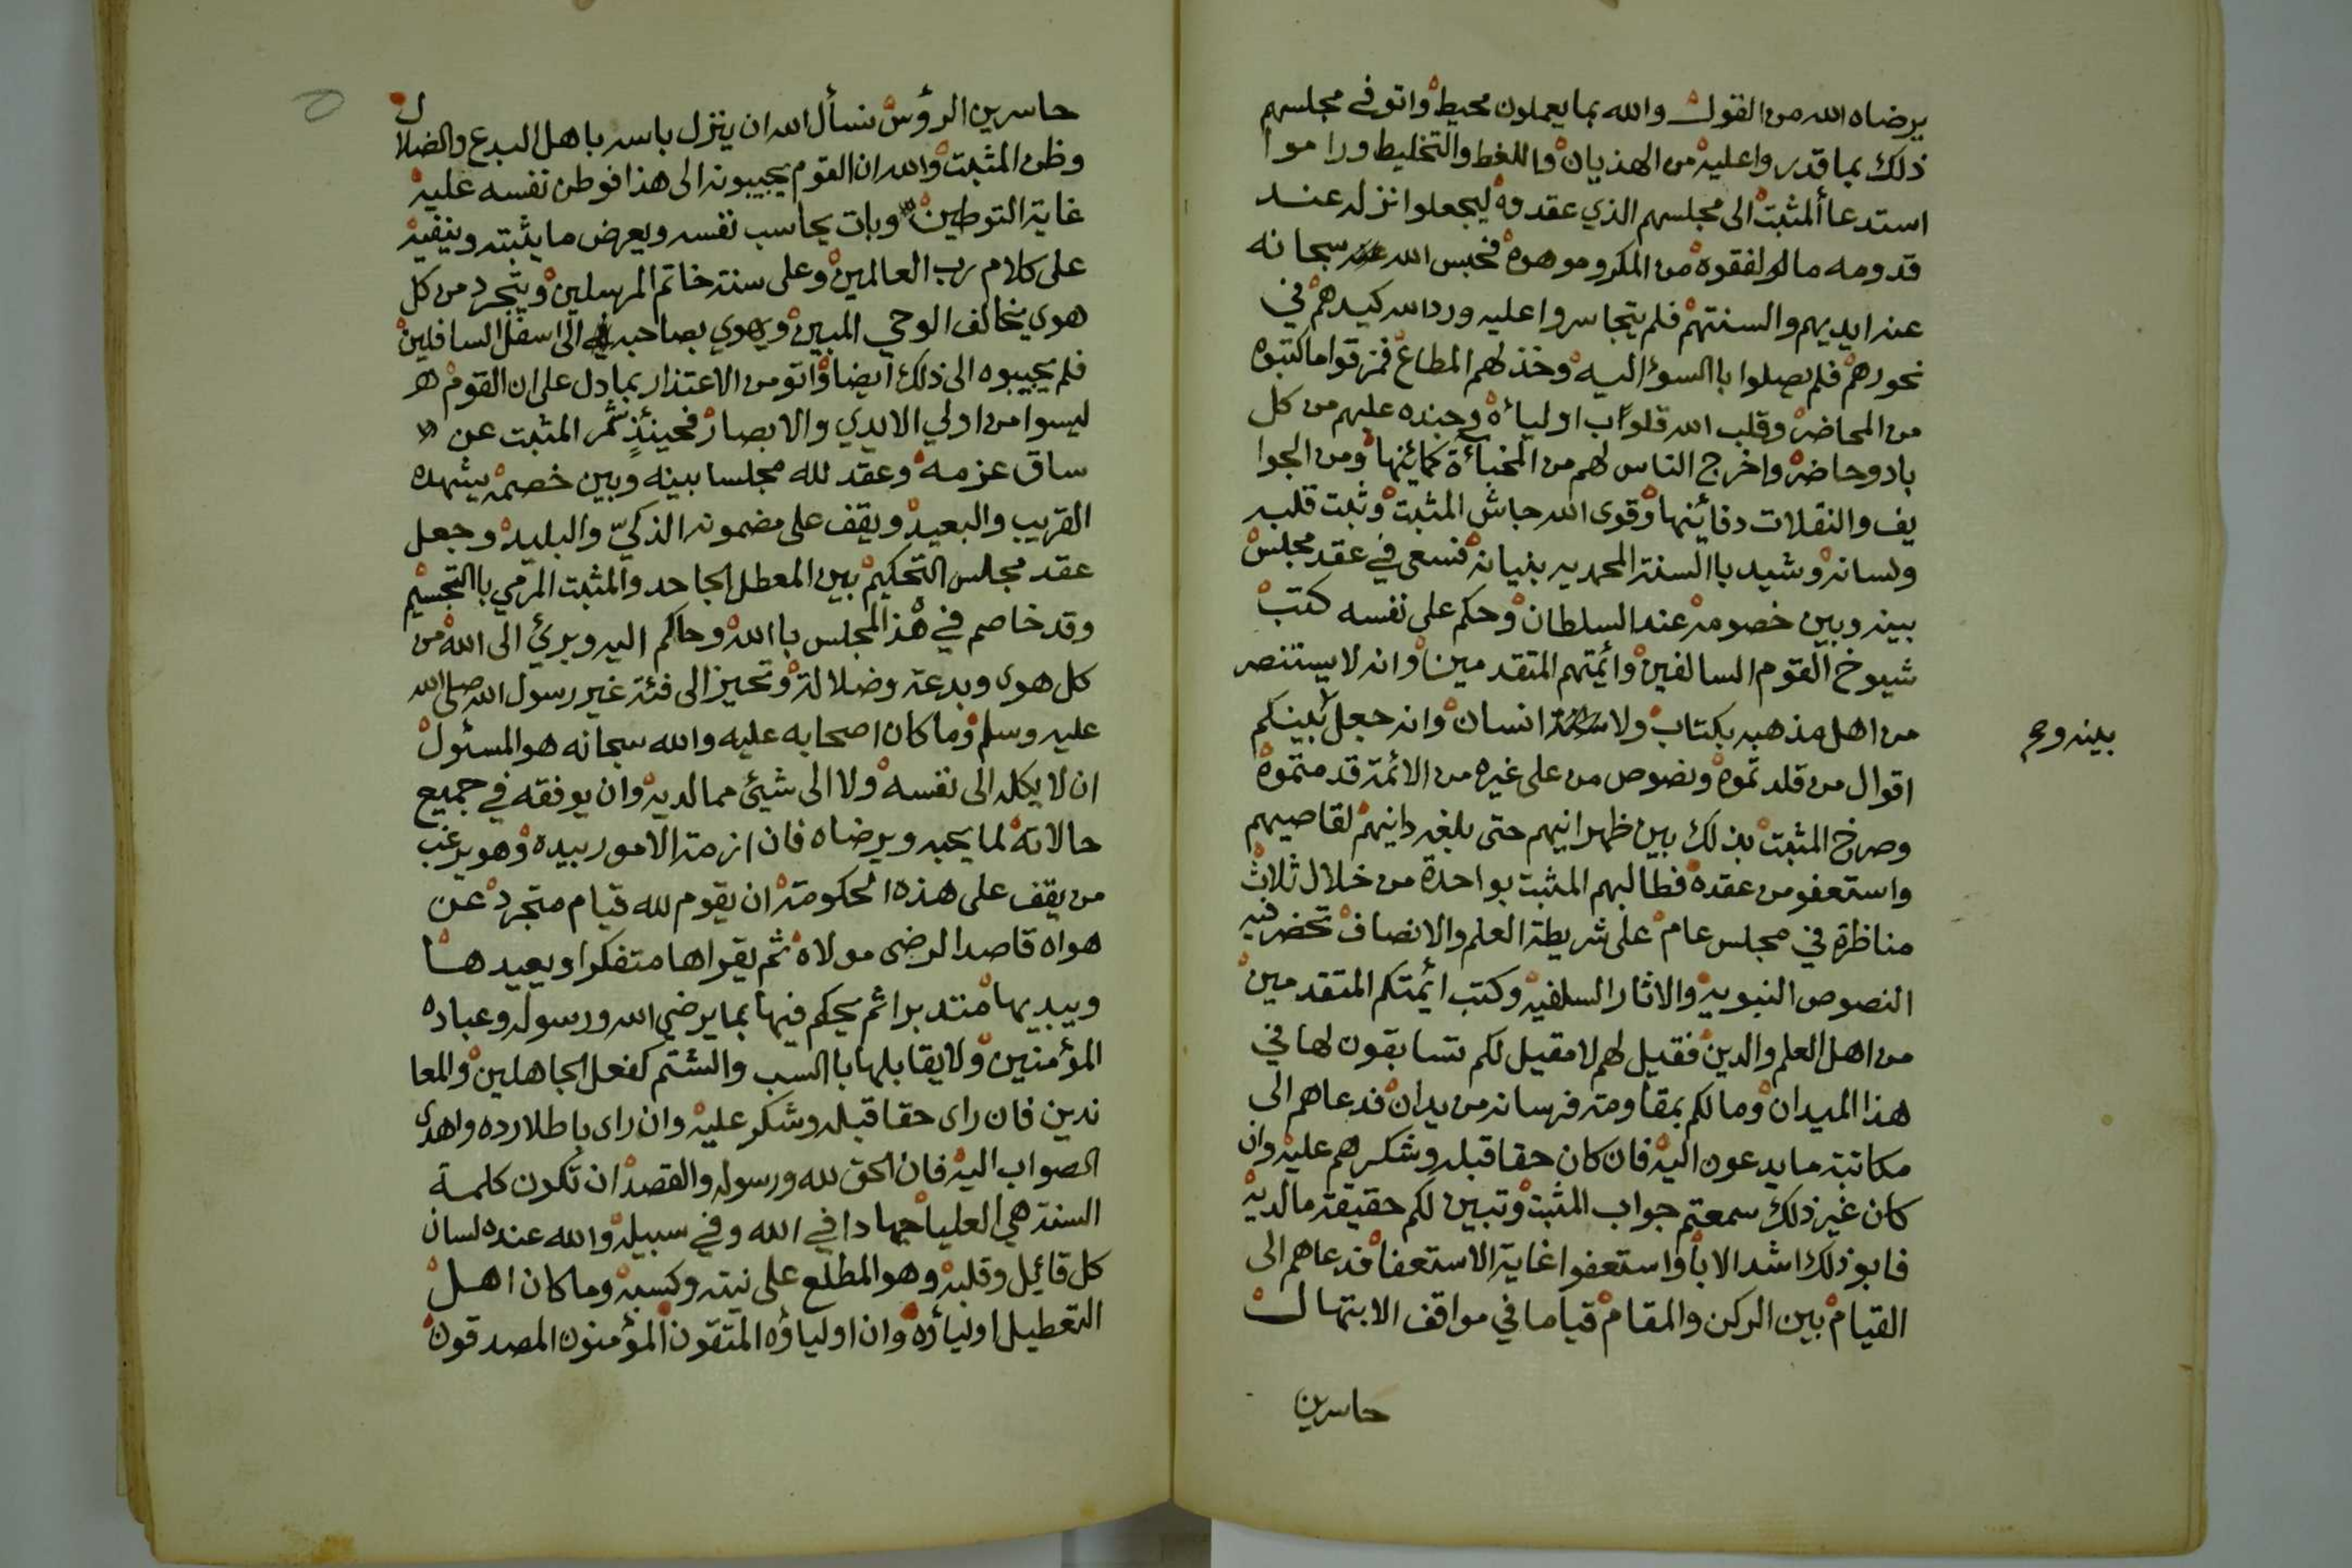 يرضاه الله من القول والله بما يعملون محيط واتو في مجلسهم
ذلك بما قدروا عليه من الهذيان واللغط والتخليط وراموا
استدعا ألمثبت الى مجلسهم الذي عقدوه ليجعلوا نزله عند
قدومه ما لو لفقوه من المكر وموهوه فحبس الله سبحانه
عنه ايديهم والسنتهم فلم يتجاسروا عليه ورد الله كيدهم في
نحورهم فلم يصلوا باالسوء اليه وخذلهم المطاع فمزقوا ما كتبوه
من المحاضر وقلب الله قلوب اولياءه وجنده عليهم من كل
باد وحاضر واخرج الناس لهم من المخباءة كمائنها ومن الجوا
يف والنقلات دفائنها وقوى الله جاش المثبت وثبت قلبه
ولسانه وشيد باالسنة المحمديه بنيانه فسعى في عقد مجلس
بينه وبين خصومه عند السلطان وحكم على نفسه كتب
شيوخ القوم السالفين وأئمتهم المتقدمين وانه لا يستنصر
من اهل مذهبه بكتاب ولا انسان وانه جعل بينكم
بينه وح
اقوال من قلدتموه ونصوص من على غيره من الائمة قدمتموه
وصرخ المثبت بذلك بين ظهرانيهم حتى بلغه دانيهم لقاصيهم
واستعفو من عقده فطالبهم المثبت بواحدة من خلال ثلاث
مناظرة في مجلس عام على شريطة العلم والانصاف تحضر فيه
النصوص النبويه والاثار السلفيه وكتب أئمتكم المتقدمين
من اهل العلم والدين فقيل لهم لا مقيل لكم تسابقون لها في
هذا الميدان وما لكم بمقاومة فرسانه من يدان فدعاهم الى
مكاتبة ما يدعون اليه فان كان حقا قبله وشكرهم عليه وان
كان غير ذلك سمعتم جواب المثبت وتبين لكم حقيقة مالديه
فابو ذلك اشد الابا واستعفوا غاية الاستعفا فدعاهم الى
القيام بين الركن والمقام قياما في مواقف الابتهال
حاسرين
حاسرين الرؤس نسأل الله ان ينزل باسه باهل البدع والضلال
وظن المثبت والله ان القوم يجيبونه الى هذا فوطن نفسه عليه
غاية التوطين وبات يحاسب نفسه ويعرض ما يثبته وينفيه
على كلام رب العالمين وعلى سنة خاتم المرسلين ويتجرد من كل
هوى يخالف الوحي المبين ويهوي بصاحبه الى اسفل السافلين
فلم يجيبوه الى ذلك ايضا واتو من الاعتذار بما دل على ان القوم
ليسوا من اولي الايدي والابصار فحينئذٍ شمر المثبت عن
ساق عزمه وعقد لله مجلسا بينه وبين خصمه يشهده
القريب والبعيد ويقف على مضمونه الذكيّ والبليد وجعل
عقد مجلس التحكيم بين المعطل الجاحد والمثبت المرمي باالتجسيم
وقد خاصم في هذا المجلس باالله وحاكم اليه وبرئ الى الله من
كل هوى وبدعة وضلالة وتحيز الى فئة غير رسول الله صلى الله
عليه وسلم وما كان اصحابه عليه والله سبحانه هو المسئول
ان لا يكله الى نفسه ولا الى شيئ مما لديه وان يوفقه في جميع
حالاته لما يحبه ويرضاه فان ازمة الامور بيده وهو يرغب
من يقف على هذه الحكومة ان يقوم لله قيام متجرد عن
هواه قاصدا لرضى مولاه ثم يقراها متفكرا ويعيدها
ويبديها متدبرا ثم يحكم فيها بما يرضي الله ورسوله وعباده
المؤمنين ولا يقابلها باالسب والشتم كفعل الجاهلين والمعا
ندين فان راى حقا قبله وشكر عليه وان راى باطلا رده واهدى
الصواب اليه فان الحق لله ورسوله والقصد ان تكون كلمة
السنة هي العليا جهادا في الله وفي سبيله والله عنده لسان
كل قائيل وقلبه وهو المطلع على نيته وكسبه وما كان اهل
التعطيل اولياؤه وان اولياؤه المتقون المؤمنون المصدقون